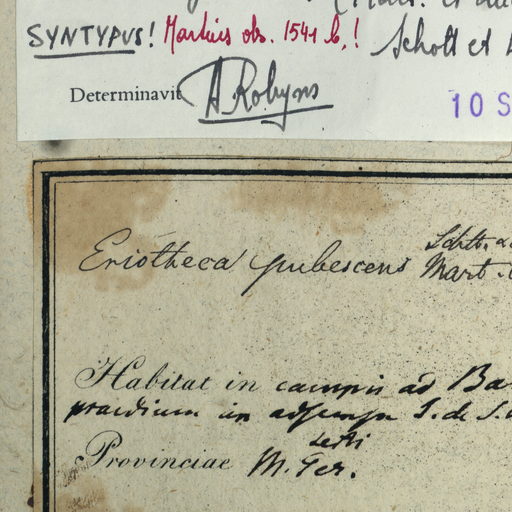 SYNTYPUS! Martius obs. 1541 b,! Schott et
Determinavit A Robyns
10 S
Eriotheca pubescens Schtt. &
Mart.
Habitat in campis ad Ba
praedium in S. de S.
Provinciae M. Ger.